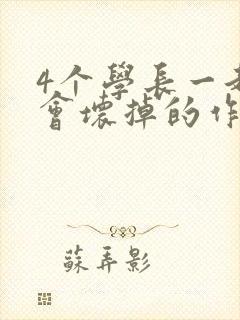 4个學長一
會壞掉的作
蘇弄影